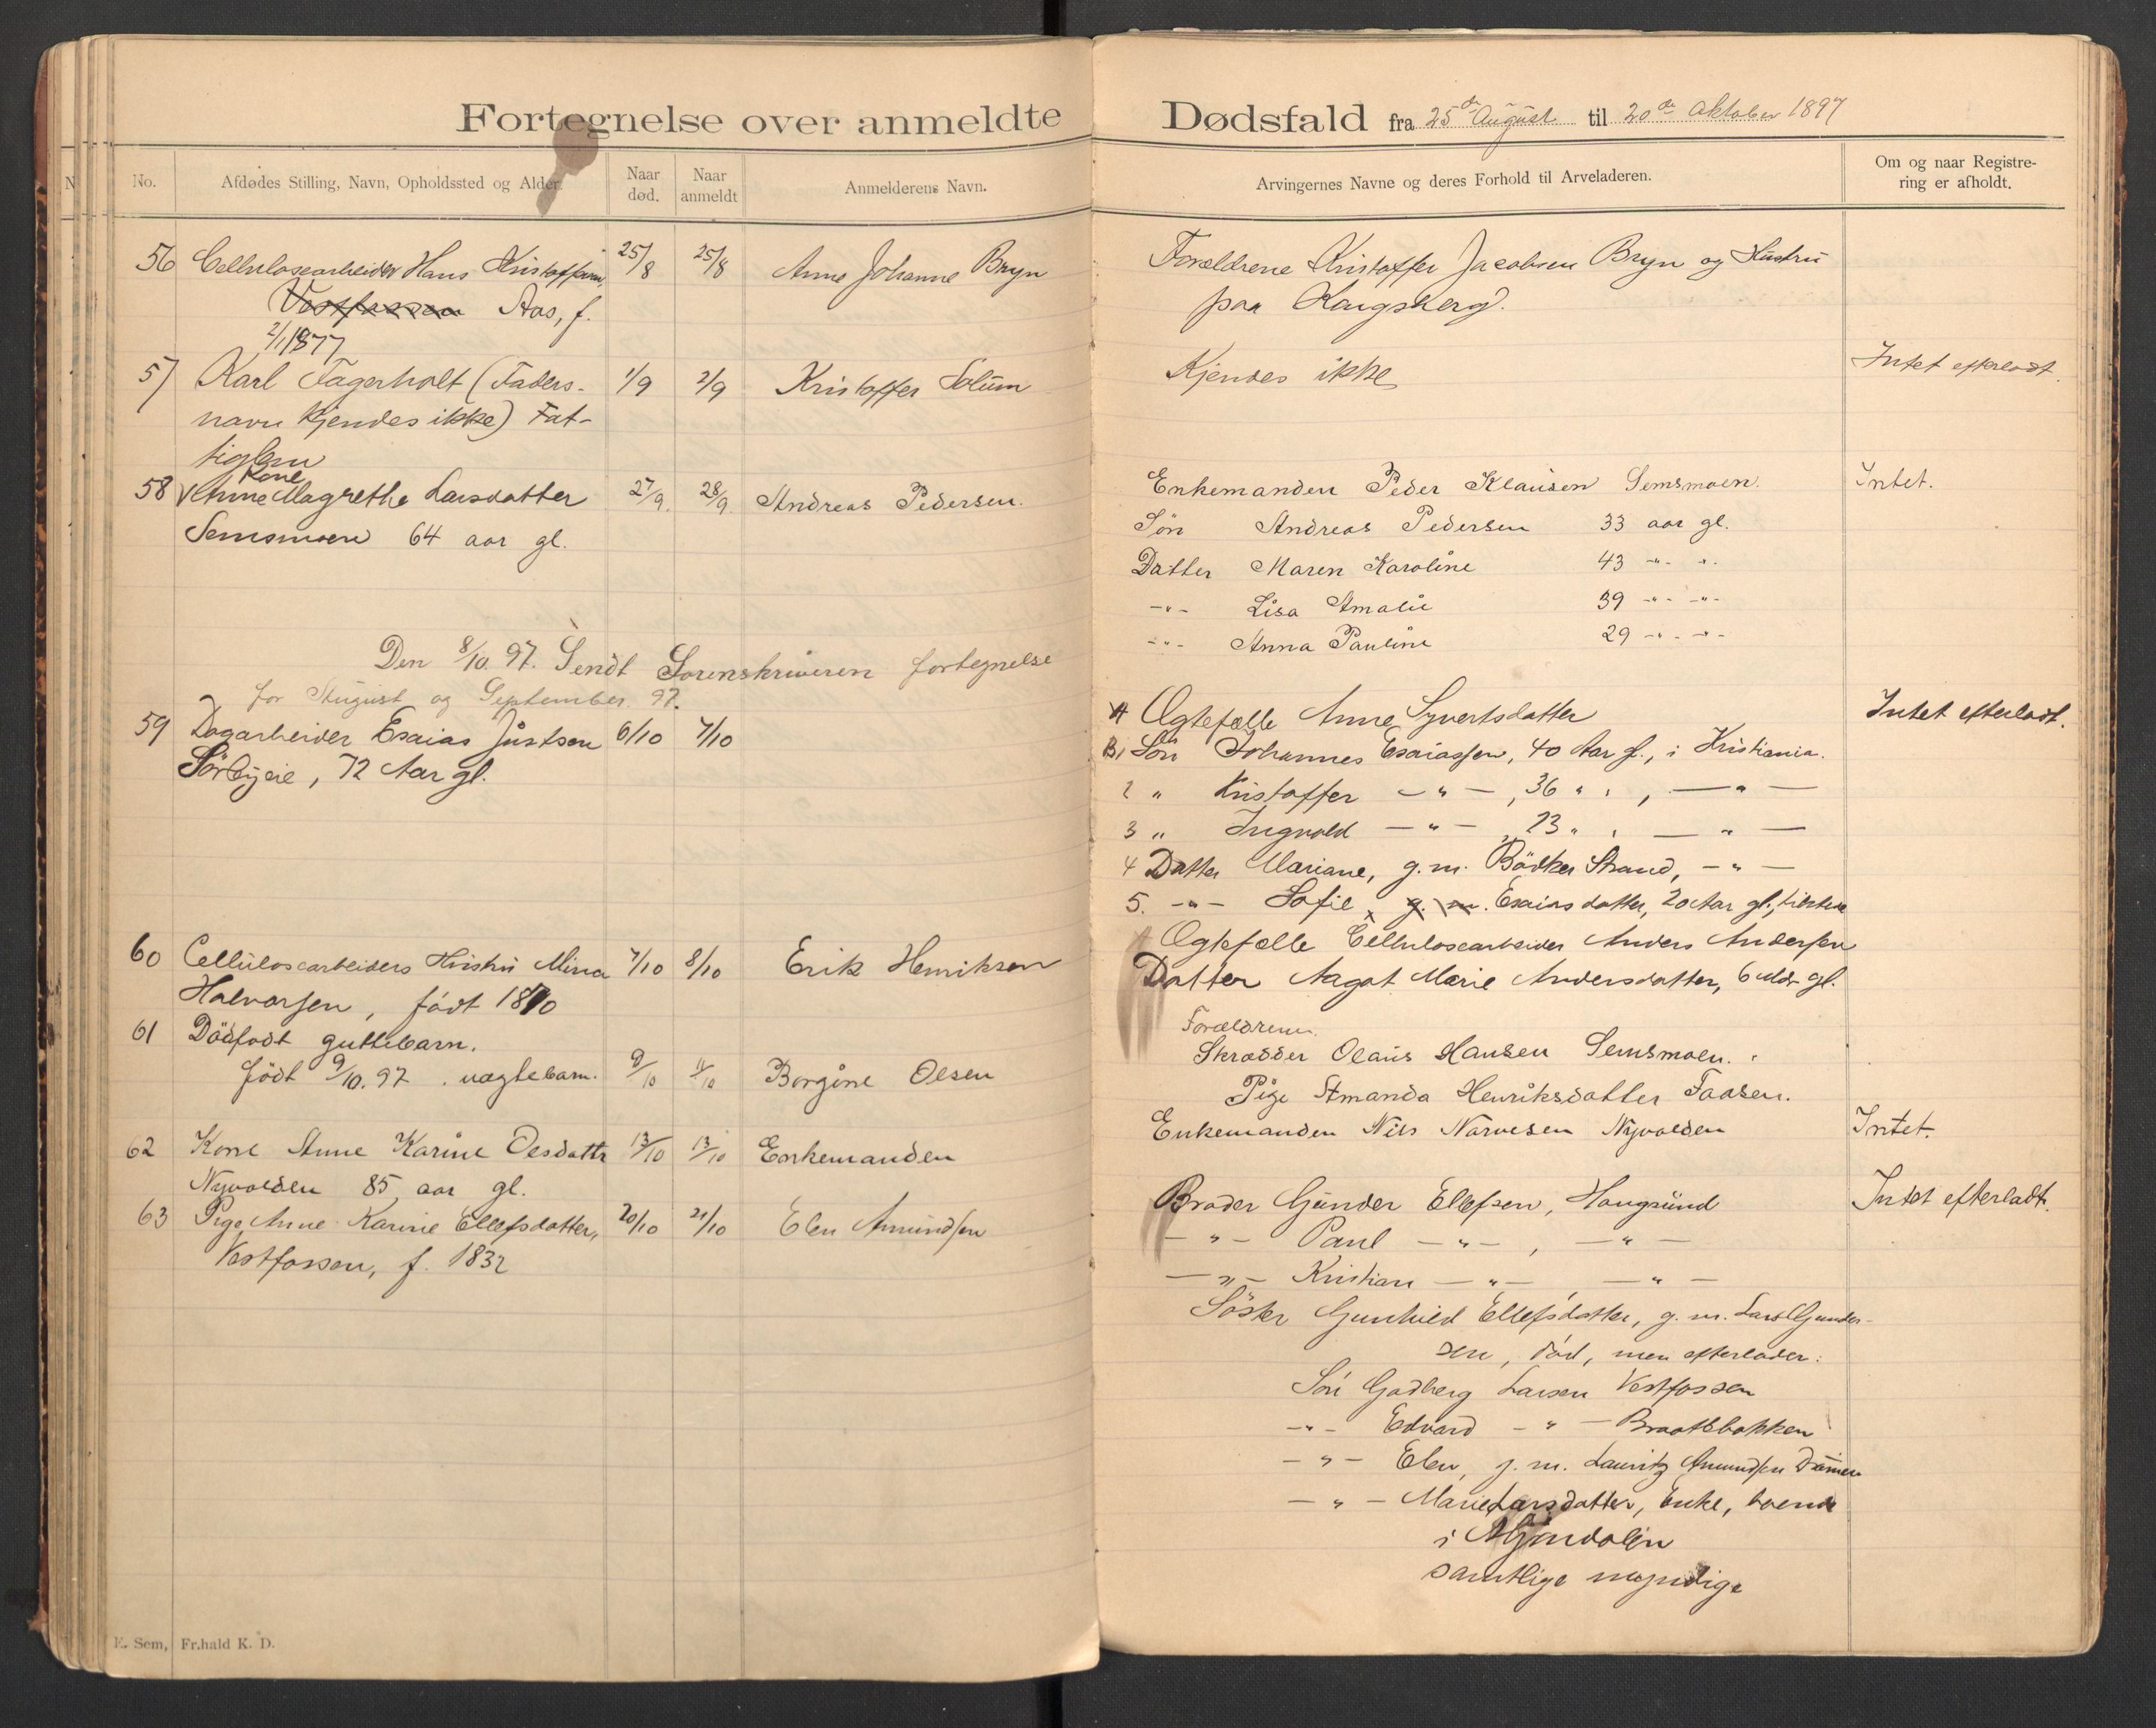 Fortegnelse over anmeldte
No.
Afdødes Stilling, Navn, Opholdssted og Alder.
Naar død.
Naar anmeldt
Anmelderens Navn.
56 Cellulosearbeider Hans Kristoffersen, 25/8 25/8 Anne Johanne Bryn
Vestfossen Aas, f.
2/1 1877
57 Karl Fagerholt (Faders- 1/9 2/9 Kristoffer Solum
navn kjendes ikke) Fat-
tiglem
Kone
58 Anne Magrethe Larsdatter 27/9. 28/9. Andreas Pedersen.
Semsmoen 64 aar gl.
Den 8/10. 97. Sendt Sorenskriveren fortegnelse
for August og September. 97.
59 Dagarbeider Esaias Justsen 6/10 7/10
Sørbyeie, 72 Aar gl.
60 Cellulosearbeiders Hustru Mina 7/10 8/10 Erik Henriksen
Halvorsen, født 1870
61 Dødfødt guttebarn.
født 9/10. 97. uægtebarn. 9/10 11/10 Borgine Olsen
62 Kone Anne Karine Olsdattr 13/10 13/10 Enkemanden
Nyvolden 85 aar gl.
63 Pige Anne Karine Ellefsdatter, 20/10 21/10 Elen Amundsen
Vestfossen, f. 1832
E. Sem, Fr.hald K. D.
Dødsfald fra 25de August til 20de Oktober 1897
Arvingernes Navne og deres Forhold til Arveladeren.
Om og naar Registre-
ring er afholdt.
Forældrene Kristoffer Jacobsen Bryn og Hustru
paa Kongsberg.
Kjendes ikke Intet efterladt.
Enkemanden Peder Klausen Semsmoen. Intet.
Søn Andreas Pedersen 33 aar gl.
Datter Maren Karoline 43 -"- -"-
-"- Lisa Amalie 39 -"- -"-
-"- Anna Pauline 29 -"- -"-
A Ægtefælle Anne Syvertsdatter Intet efterladt.
B1 Søn Johannes Esaiassen, 40 Aar gl., i Kristiania.
2 " Kristoffer -"-, 36 " ", -"-
3 " Ingvald -"-, 23 " " -"-
4 Datter Mariane, g. m. Bödker Strand, -"-
5. -"- Sofie, g. m. Esaiasdatter, 20 Aar gl.,
Ægtefælle Cellulosearbeider Anders Andersen
Datter Aagot Marie Andersdatter, 6 Mdr gl.
Forældrene.
Skrædder Olaus Hansen Semsmoen.
Pige Amanda Henriksdatter Faasen.
Enkemanden Nils Narvesen Nyvolden Intet.
Broder Gunder Ellefsen, Hougsund Intet efterladt.
-"- Paul -"-, -"-
-"- Kristian -"-, -"-
Söster Gunhild Ellefsdatter, g. m. Lars Gunder-
sen, död, men efterlader:
Sön Godberg Larsen Vestfossen
-"- Edvard -"- Braatebakken
-"- Elen, g. m. Lauritz Amundsen
-"- Marie Larsdatter, Enke, boende
i Mjöndalen
samtlige myndige